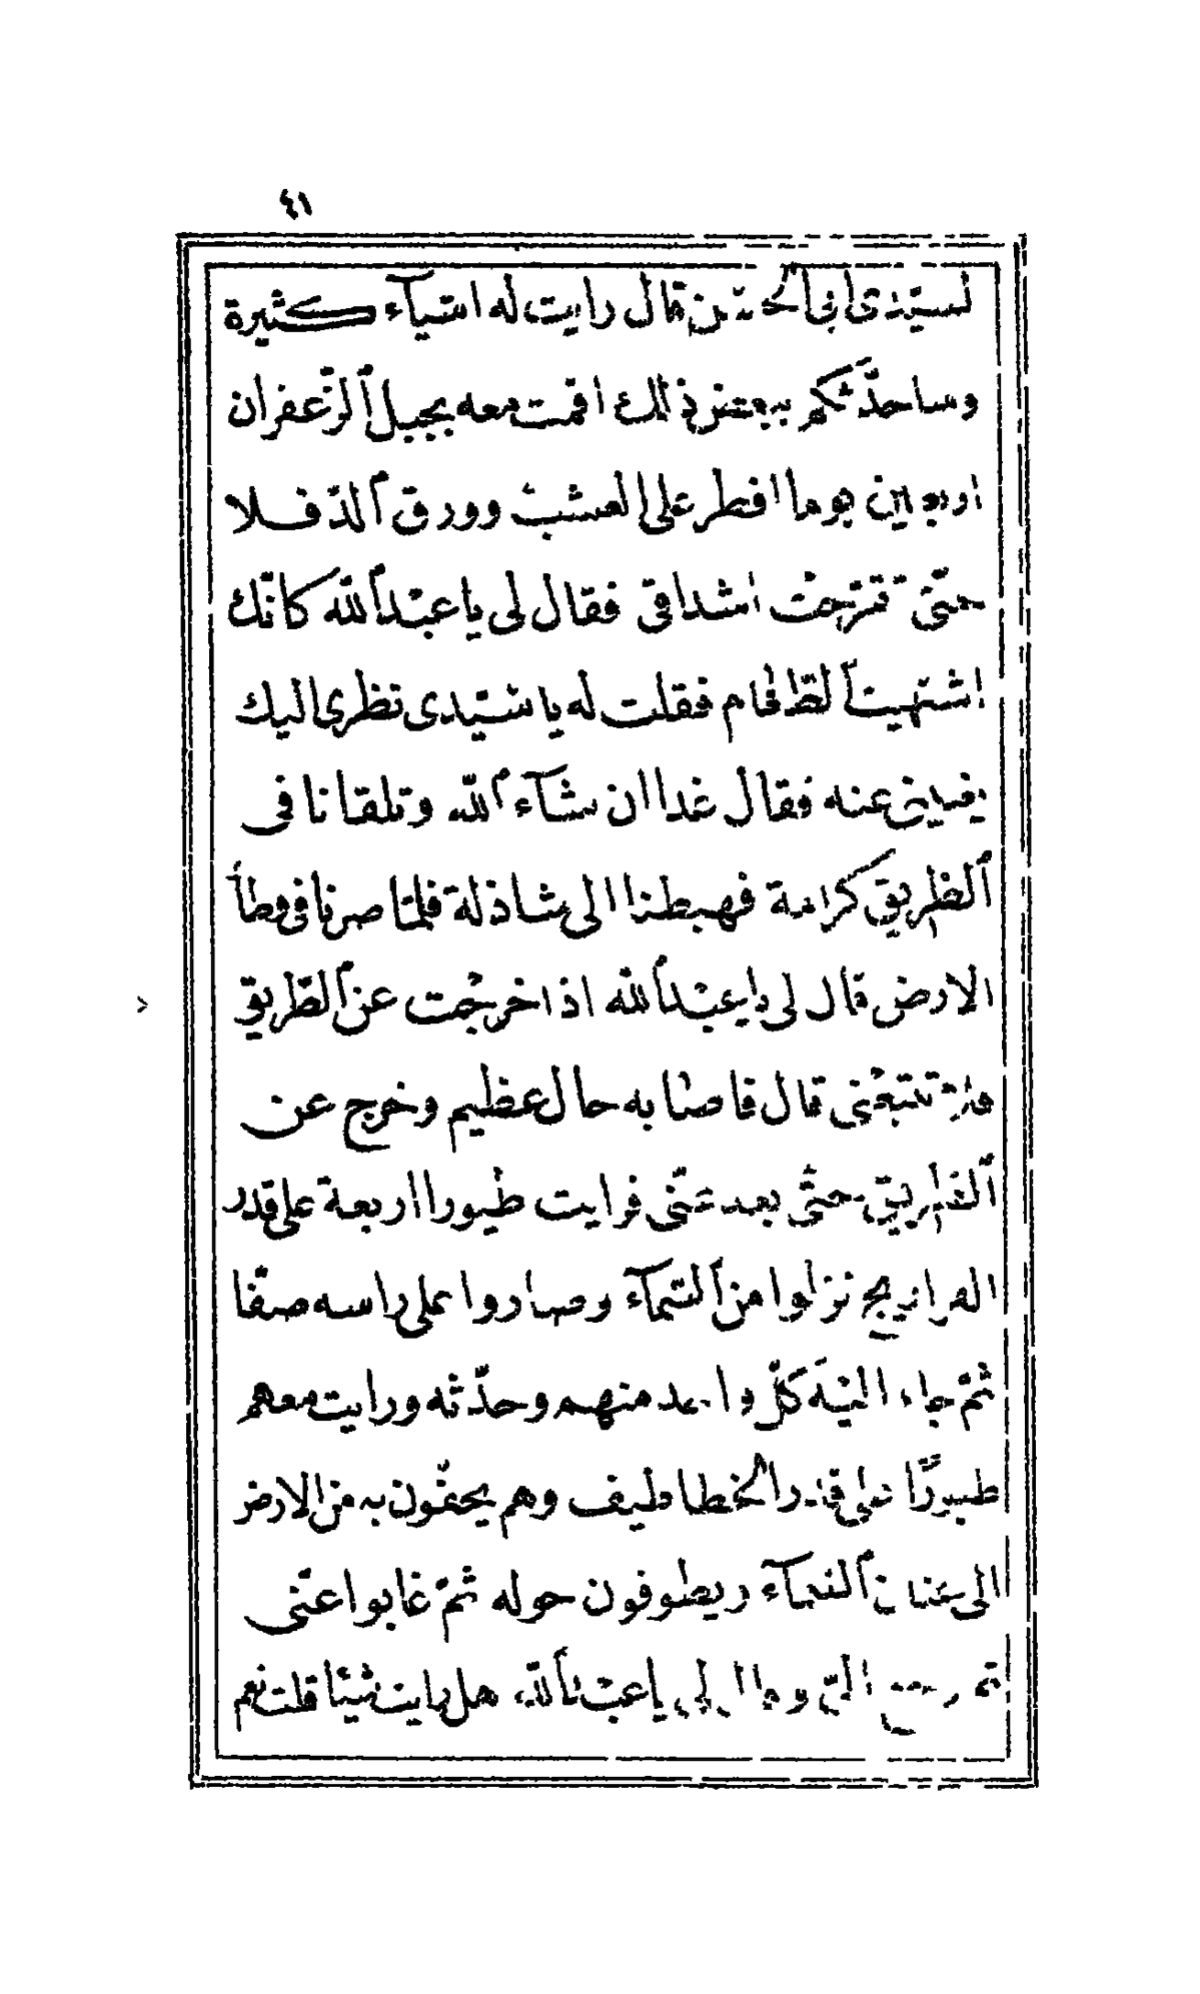 ٤١
لسيّدى ابى الحسن قال رايت له اشيآء كثيرة
وساحدّثكم ببعض ذلك اقمت معه بجبل ٱلزّعفران
اربعين يوما افطر على العشب وورق ٱلدّفلا
حتّى تقرّحت اشداقى فقال لى يا عبد ٱللّه كانّك
اشتهيت ٱلطّعام فقلت له يا سيّدى نظرى اليك
يغنينى عنه فقال غدا ان شآء ٱللّه وتلقانا فى
ٱلطّريق كرامة فهبطنا الى شاذلة فلمّا صرنا فى وطأ
الارض قال لى يا عبد ٱللّه اذا خرجت عن ٱلطّريق
فلا تتبعنى قال فاصابه حال عظيم وخرج عن
ٱلطّريق حتّى بعد عنّى فرايت طيورا اربعة على قدر
الفراريج نزلوا من ٱلسّمآء وصاروا على راسه صفّا
ثمّ جاء اليه كلّ واحد منهم وحدّثه ورايت معهم
طيورًا على قدر الخطاطيف وهم يحفّون به من الارض
الى عنان ٱلسّمآء ويطوفون حوله ثمّ غابوا عنّى
ثمّ رجع الىّ وقال لى يا عبد ٱللّه هل رايت شيئا قلت نعم